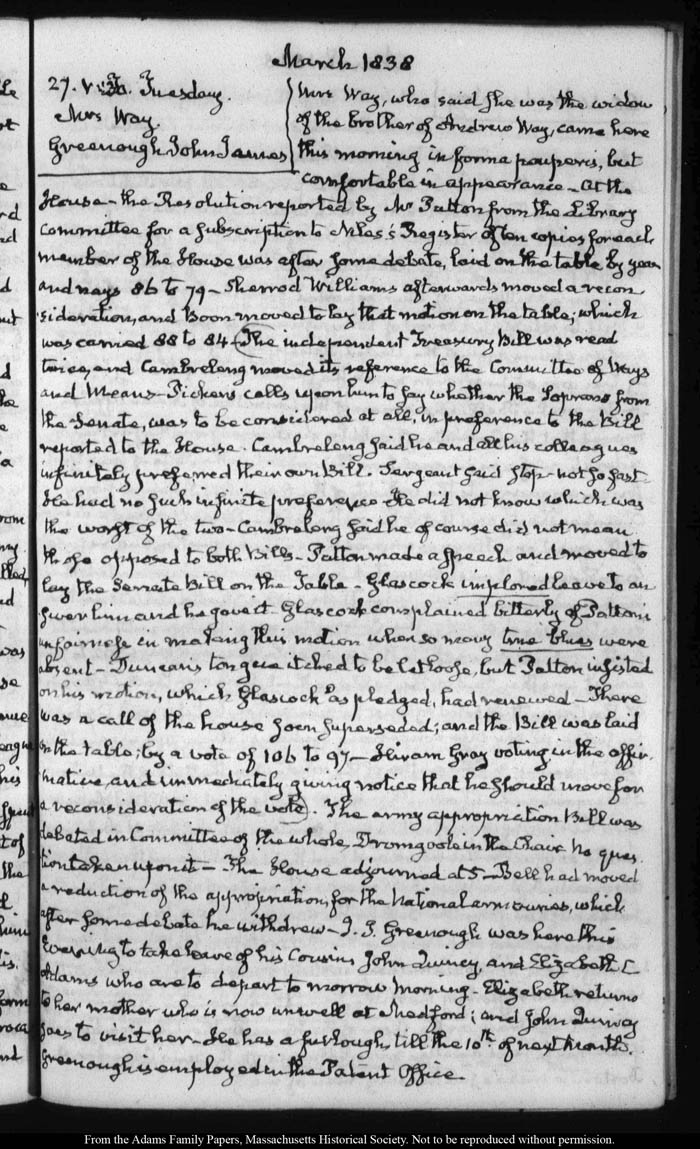 March 1838
27. V:30. Tuesday.
Mrs Way.
Greenough John James
Mrs Way, who said she was the widow
of the brother of Andrew Way, came here
this morning in forma pauperis, but
comfortable in appearance— At the
House— the Resolution reported by Mr Patton from the Library
Committee for a subscription to Niles's Register of ten copies for each
member of the House was after some debate, laid on the table by yeas
and nays 86 to 79— Sherrod Williams afterwards moved a recon-
sideration, and Boon moved to lay that motion on the table, which
was carried 88 to 84— (The independent Treasury Bill was read
twice, and Cambreleng moved its reference to the Committee of Ways
and Means— Pickens calls upon him to say whether the Soprano from
the Senate, was to be considered at all, in preference to the Bill
reported to the House. Cambreleng said he and all his colleagues
infinitely preferred their own Bill. Sergeant said stop— not so fast—
He had no such infinite preference— He did not know which was
the worst of the two— Cambreleng said he of course did not mean
those opposed to both Bills— Patton made a speech and moved to
lay the Senate Bill on the Table— Glascock implored leave to an-
swer him and he gave it. Glascock complained bitterly of Patton's
unfairness in making this motion when so many true blues were
absent— Duncan's tongue itched to be let loose, but Patton insisted
on his motion, which Glascock as pledged, had renewed— There
was a call of the house soon superseded; and the Bill was laid
on the table; by a vote of 106 to 97— Hiram Gray voting in the affir-
mative and immediately giving notice that he should move for
a reconsideration of the vote). The army appropriation Bill was
debated in Committee of the whole, Dromgoole in the Chair. No ques-
tion taken upon it— The House adjourned at 5— Bell had moved
a reduction of the appropriation, for the National armouries, which
after some debate he withdrew— J. J. Greenough was here this
Evening to take leave of his Cousins John Quincy, and Elizabeth C
Adams who are to depart to morrow morning. Elizabeth returns
to her mother who is now unwell at Medford; and John Quincy
goes to visit her— He has a furlough, till the 10th of next month.
Greenough is employed in the Patent Office.
From the Adams Family Papers, Massachusetts Historical Society. Not to be reproduced without permission.